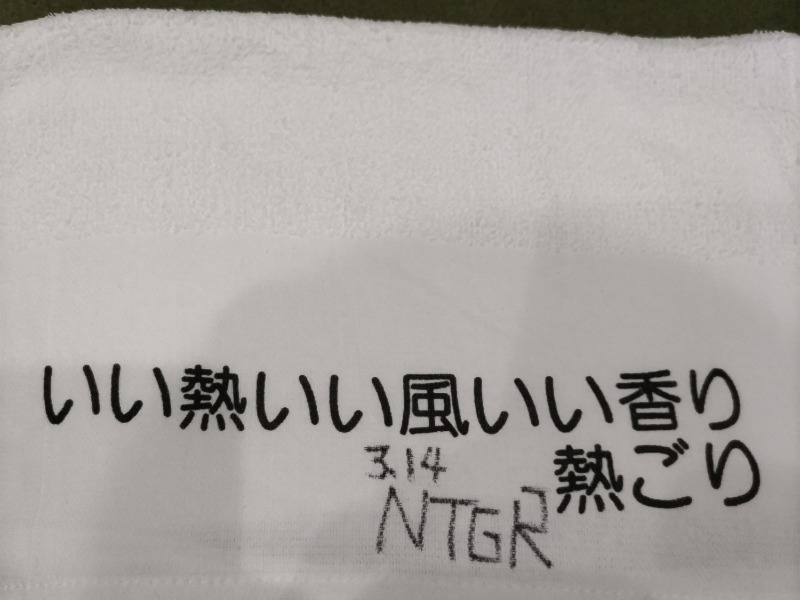 いい熱いい風いい香り
熱ごり
3.14
NTGR